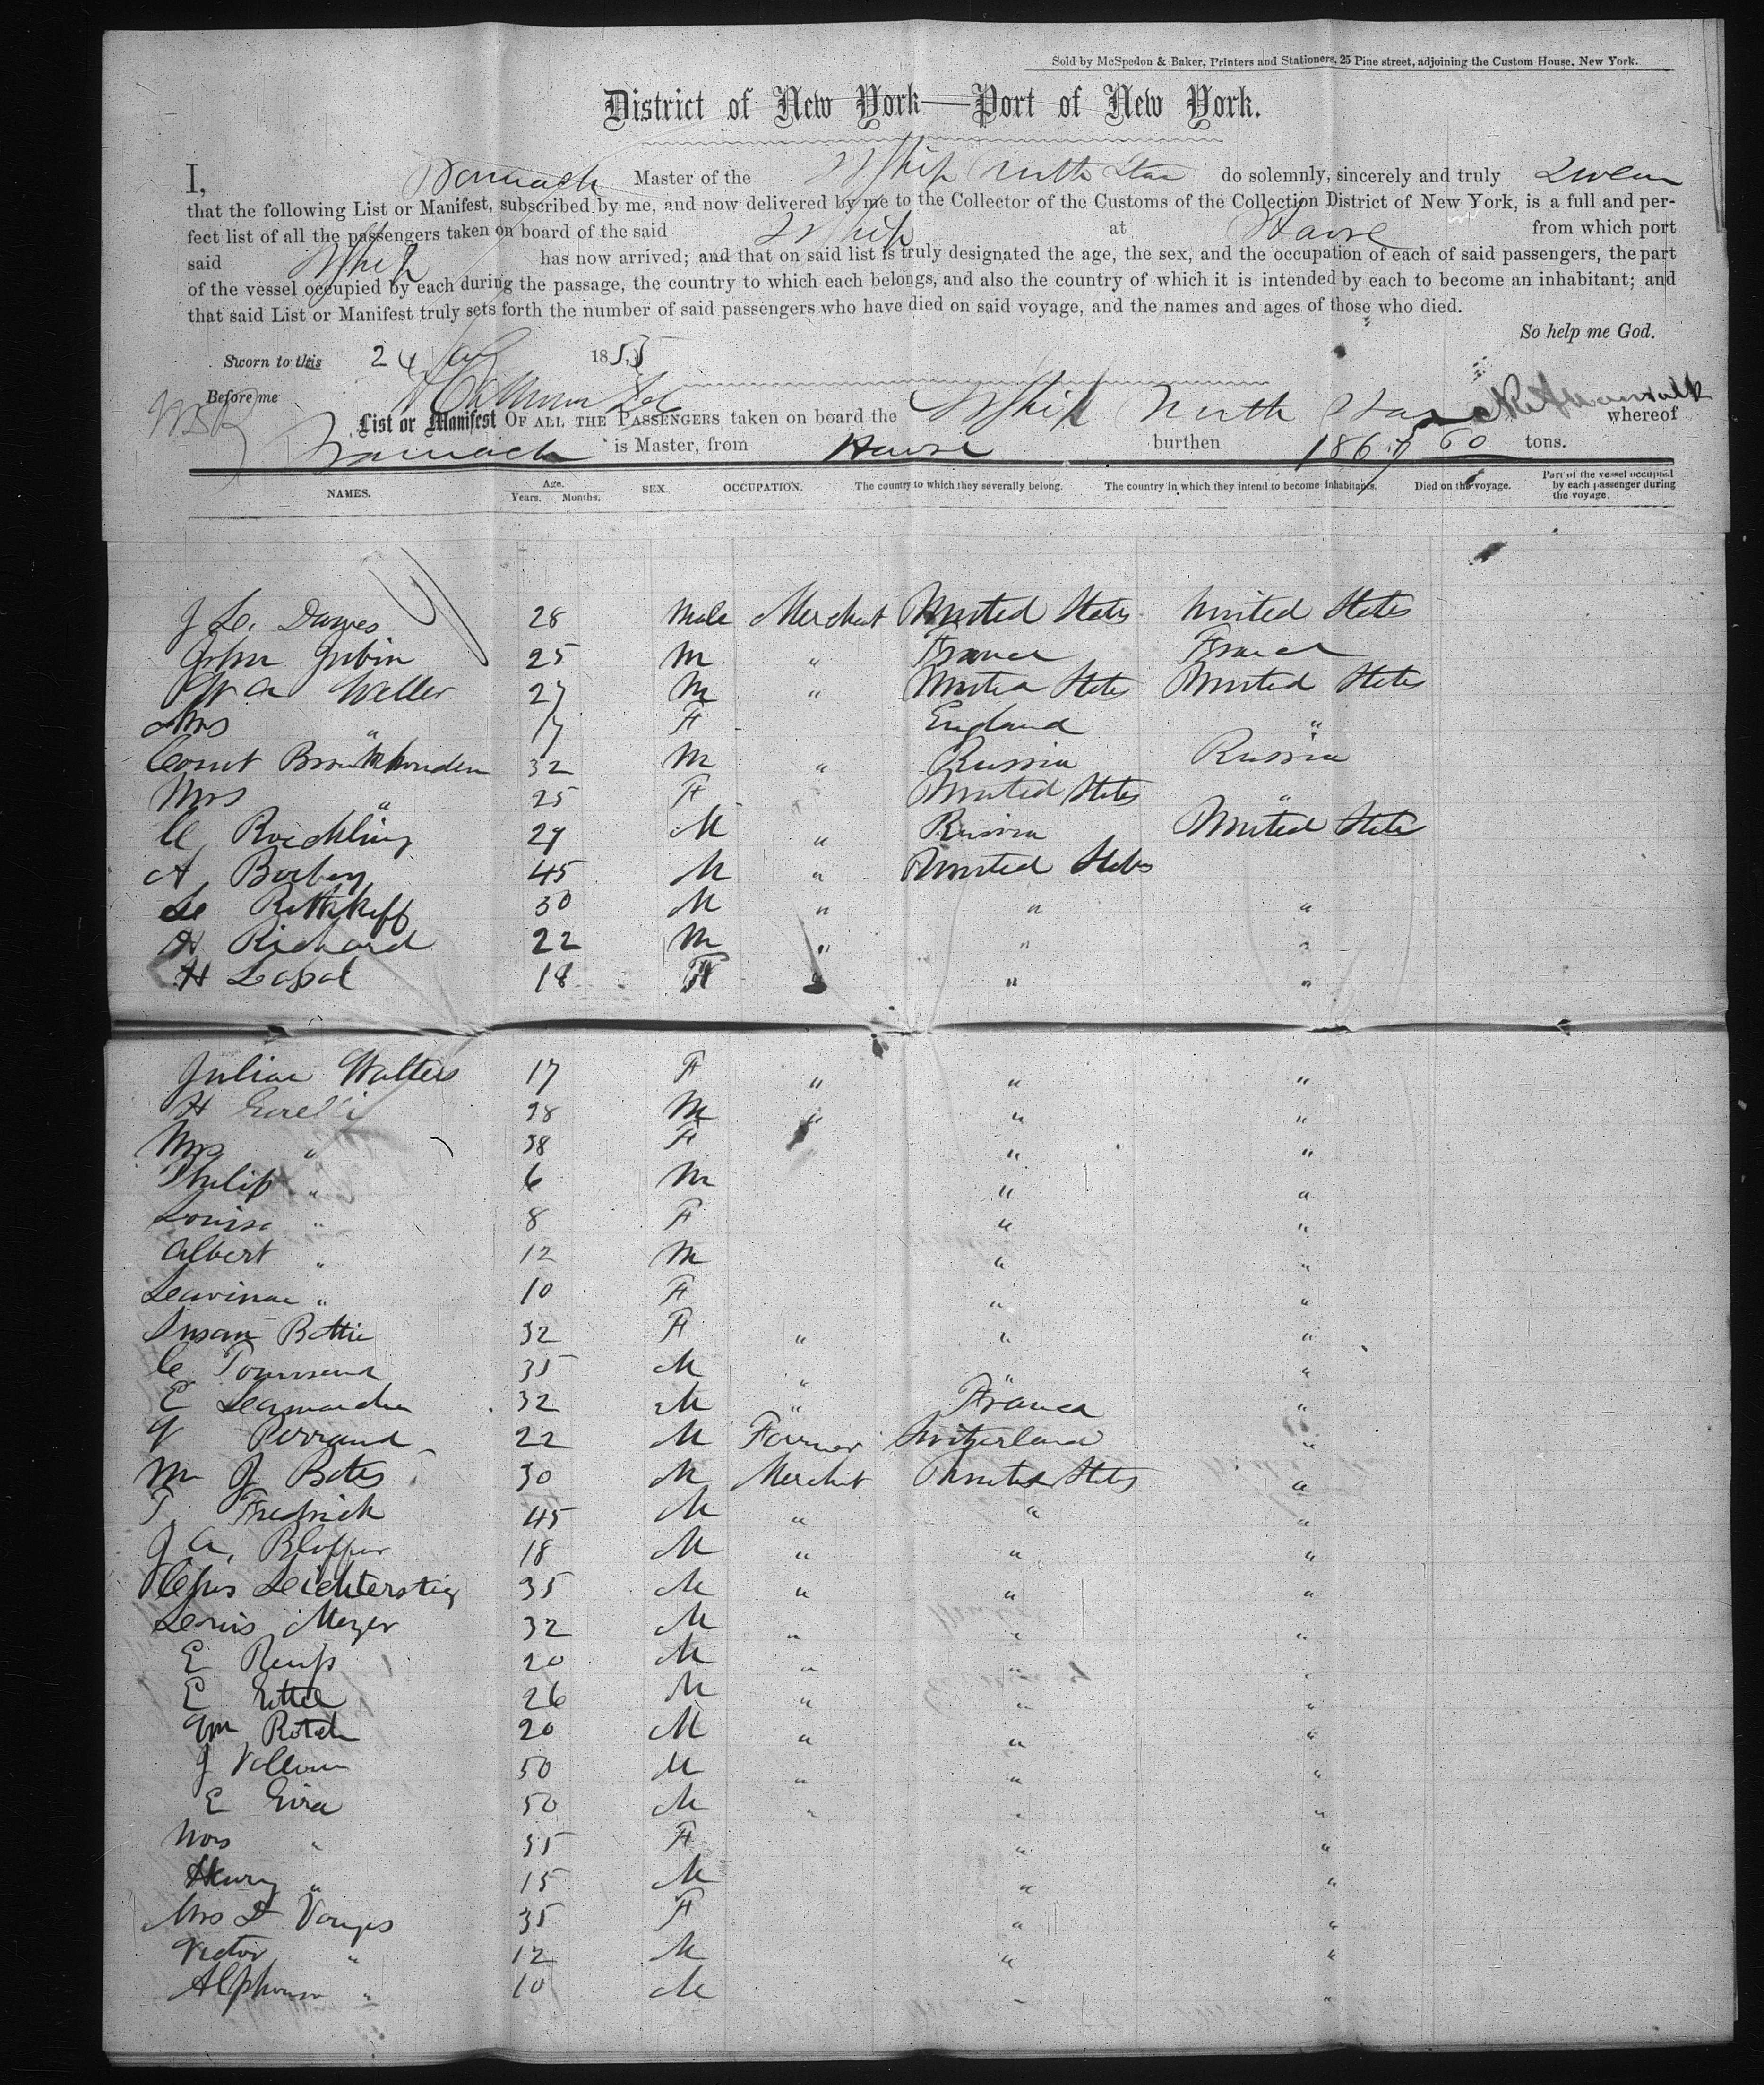 Sold by McSpedon & Baker, Printers and Stationers, 25 Pine street, adjoining the Custom House, New York.
District of New York—Port of New York.
I, Master of the SShip North Star do solemnly, sincerely and truly swear
that the following List or Manifest, subscribed by me, and now delivered by me to the Collector of the Customs of the Collection District of New York, is a full and per-
fect list of all the passengers taken on board of the said SShip at Havre from which port
said SShip has now arrived; and that on said list is truly designated the age, the sex, and the occupation of each of said passengers, the part
of the vessel occupied by each during the passage, the country to which each belongs, and also the country of which it is intended by each to become an inhabitant; and
that said List or Manifest truly sets forth the number of said passengers who have died on said voyage, and the names and ages of those who died.
So help me God.
Sworn to this 24 1855
Before me
List or Manifest OF ALL THE PASSENGERS taken on board the SShip North Star whereof
is Master, from Havre burthen 1867 60 tons.
NAMES. Age. Years. Months. SEX. OCCUPATION. The country to which they severally belong. The country in which they intend to become inhabitants. Died on the voyage. Part of the vessel occupied by each passenger during the voyage.
J Le. Dawes 28 Male Merchant United States United States
John Jubin 25 M " France France
W A Weller 27 M " United States United States
Mrs " 17 F England "
Count 32 M " Russia Russia
Mrs " 25 F United States "
C Roechling 29 M " Russia United States
A 45 M " United States
30 M " " "
H Richard 22 M " " "
H 18 F " "
Julian Walters 17 F " " "
H 38 M " " "
Mrs " 38 F " "
Philip " 6 M " "
Louisa " 8 F " "
Albert " 12 M " "
" 10 F " "
Susan Bottie 32 F " " "
C Townsend 35 M " " "
E 32 M " France "
Perraud 22 M Farmer Switzerland "
M J Bates 30 M Merchant United States "
T. Fredrick 45 M " " "
J A. 18 M " " "
Chs Leichterstig 35 M " " "
Louis Meyer 32 M " " "
E 20 M " " "
E 26 M " " "
Wm Rotch 20 M " " "
J 50 M " " "
E 50 M " " "
Mrs " 35 F " "
Henry " 15 M " "
Mrs 35 F " "
Victor " 12 M " "
Alphonse " 10 M "